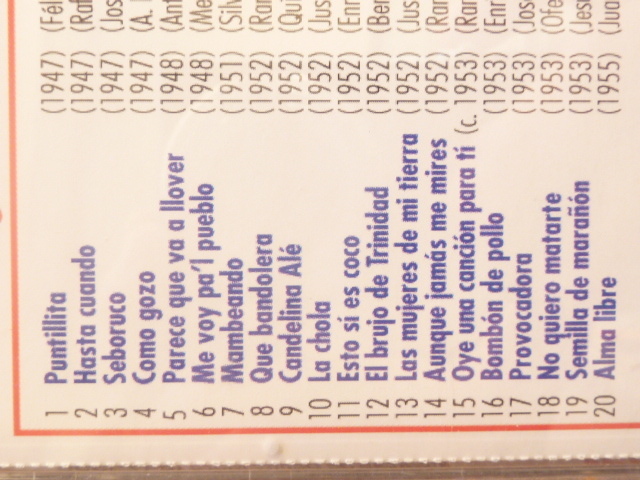 1 Puntillita (1947) (Fél
2 Hasta cuando (1947) (Raf
3 Seboruco (1947) (Jos
4 Como gozo (1947) (A.
5 Parece que va a llover (1948) (Ant
6 Me voy pa'l pueblo (1948) (Me
7 Mambeando (1951) (Silv
8 Que bandolera (1952) (Ra
9 Candelina Alé (1952) (Qui
10 La chola (1952) (Jus
11 Esto sí es coco (1952) (Enr
12 El brujo de Trinidad (1952) (Ber
13 Las mujeres de mi tierra (1952) (Jus
14 Aunque jamás me mires (1952) (Rar
15 Oye una canción para tí (c. 1953) (Ra
16 Bombón de pollo (1953) (Enr
17 Provocadora (1953) (Jos
18 No quiero matarte (1953) (Ofe
19 Semilla de marañón (1953) (Jes
20 Alma libre (1955) (Jua